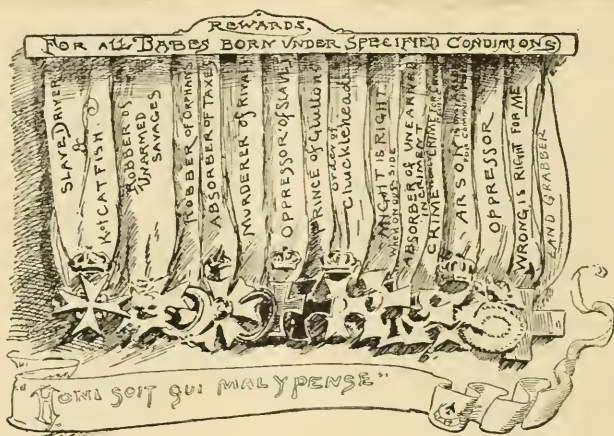 REWARDS,
FOR ALL BABES BORN UNDER SPECIFIED CONDITIONS
SLAVE DRIVER
&
K of CATFISH.
ROBBER OF
UNARMED
SAVAGES
ROBBER OF ORPHANS
ABSORBER OF TAXES
MURDERER OF RIVALS
OPPRESSOR OF SLAVES
PRINCE OF Gluttons
order of
Chucklehead
MIGHT IS RIGHT
WHEN ON OUR SIDE
ABSORBER OF UNEARNED
INCREMENT
CRIME
CRIME
ARSON
OPPRESSOR
WRONG IS RIGHT FOR ME
LAND GRABBER
"HONI SOIT QUI MAL Y PENSE"